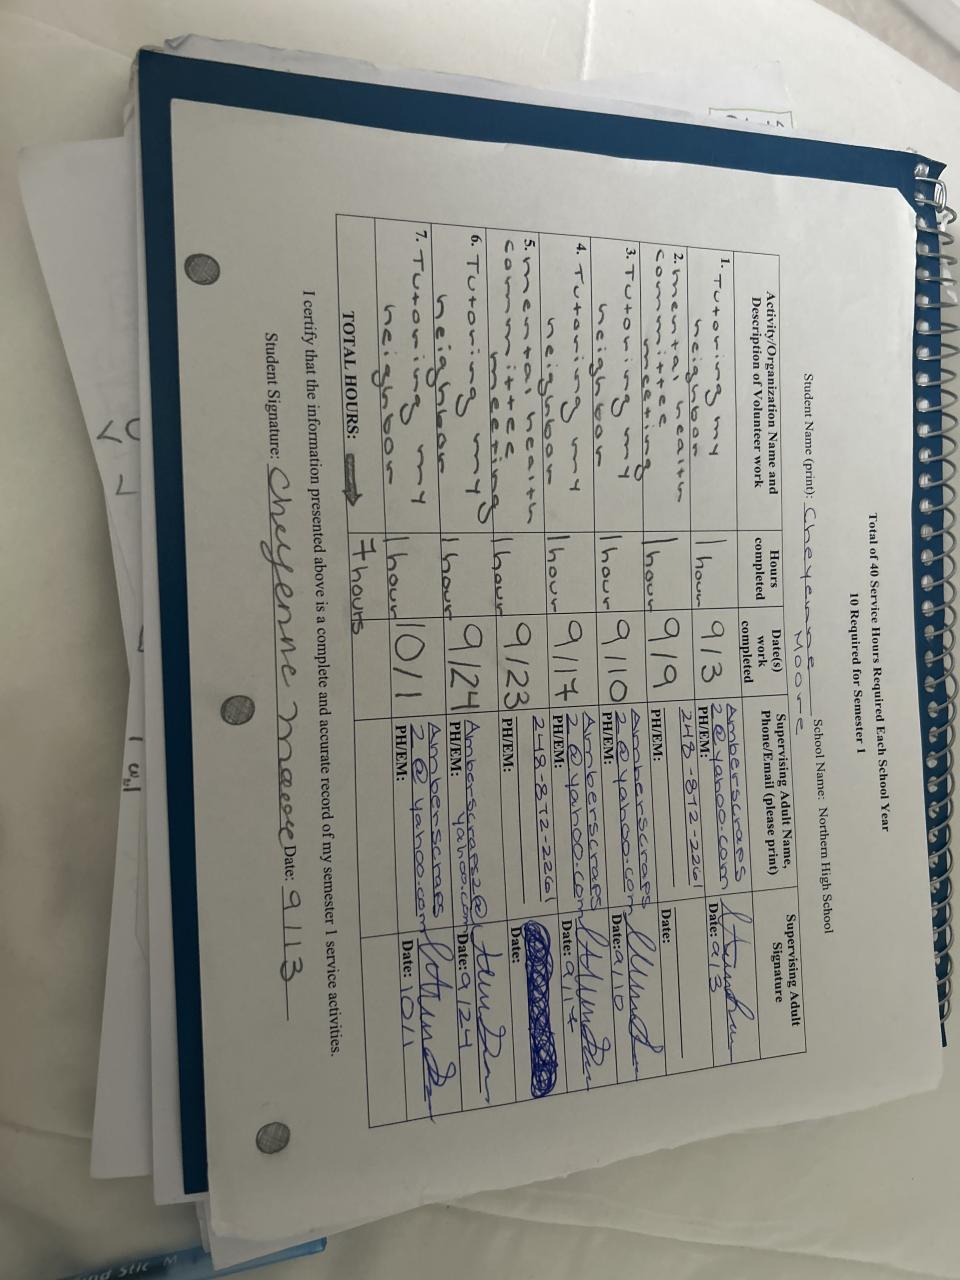 Total of 40 Service Hours Required Each School Year
10 Required for Semester 1
Student Name (print): Cheyenne Moore School Name: Northern High School
Activity/Organization Name and Description of Volunteer work
Hours completed
Date(s) work completed
Supervising Adult Name, Phone/Email (please print)
Supervising Adult Signature
1. Tutoring my
neighbor
1 hour
9/3
Amberscraps
2@yahoo.com
PH/EM:
Date: 9/3
2. mental health
committee
meeting
1 hour
9/9
248-872-2261
PH/EM:
Date:
3. Tutoring my
neighbor
1 hour
9/10
Amberscraps
2@yahoo.com
PH/EM:
Date: 9/10
4. Tutoring my
neighbor
1 hour
9/17
Amberscraps
2@yahoo.com
PH/EM:
Date: 9/17
5. mental health
committee
meeting
1 hour
9/23
248-872-2261
PH/EM:
Date:
6. Tutoring my
neighbor
1 hour
9/24
Amberscraps2@
yahoo.com
PH/EM:
Date: 9/24
7. Tutoring my
neighbor
1 hour
10/1
Amberscraps
2@yahoo.com
PH/EM:
Date: 10/1
TOTAL HOURS:
7 hours
I certify that the information presented above is a complete and accurate record of my semester 1 service activities.
Student Signature: Cheyenne Moore Date: 9/13